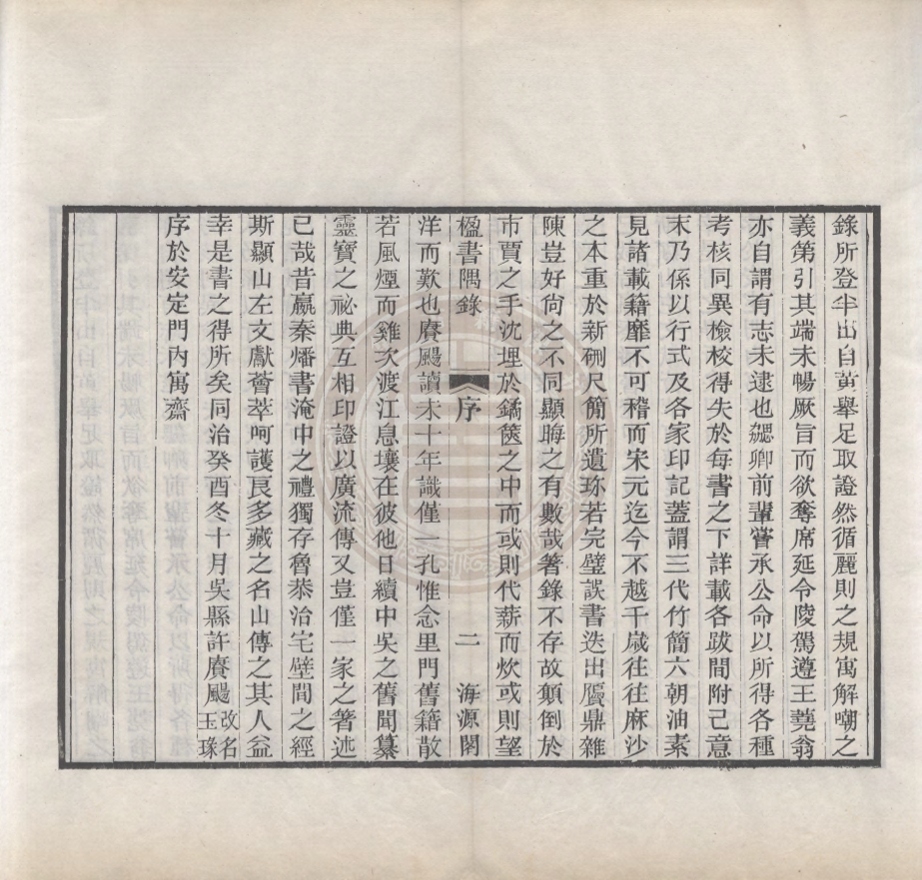 錄所登半出自黃舉足取證然循麗則之規寓解嘲之
義第引其端未暢厥旨而欲奪席延令陵駕遵王蕘翁
亦自謂有志未逮也勰卿前輩嘗承公命以所得各種
考核同異檢校得失於每書之下詳載各跋間附己意
末乃係以行式及各家印記蓋謂三代竹簡六朝油素
見諸載籍靡不可稽而宋元迄今不越千歲往往麻沙
之本重於新硎尺簡所遺珍若完璧誤書迭出贗鼎雜
陳豈好尙之不同顯晦之有數哉著錄不存故顛倒於
市賈之手沈埋於鐍篋之中而或則代薪而炊或則望
楹書隅錄 序 二 海源閣
洋而歎也賡颺讀未十年識僅一孔惟念里門舊籍散
若風煙而雞次渡江息壤在彼他日續中吳之舊聞纂
靈寶之祕典互相印證以廣流傳又豈僅一家之著述
已哉昔嬴秦燔書淹中之禮獨存魯恭治宅壁間之經
斯顯山左文獻薈萃呵護良多藏之名山傳之其人益
幸是書之得所矣同治癸酉冬十月吳縣許賡颺改名玉瑑
序於安定門內寓齋